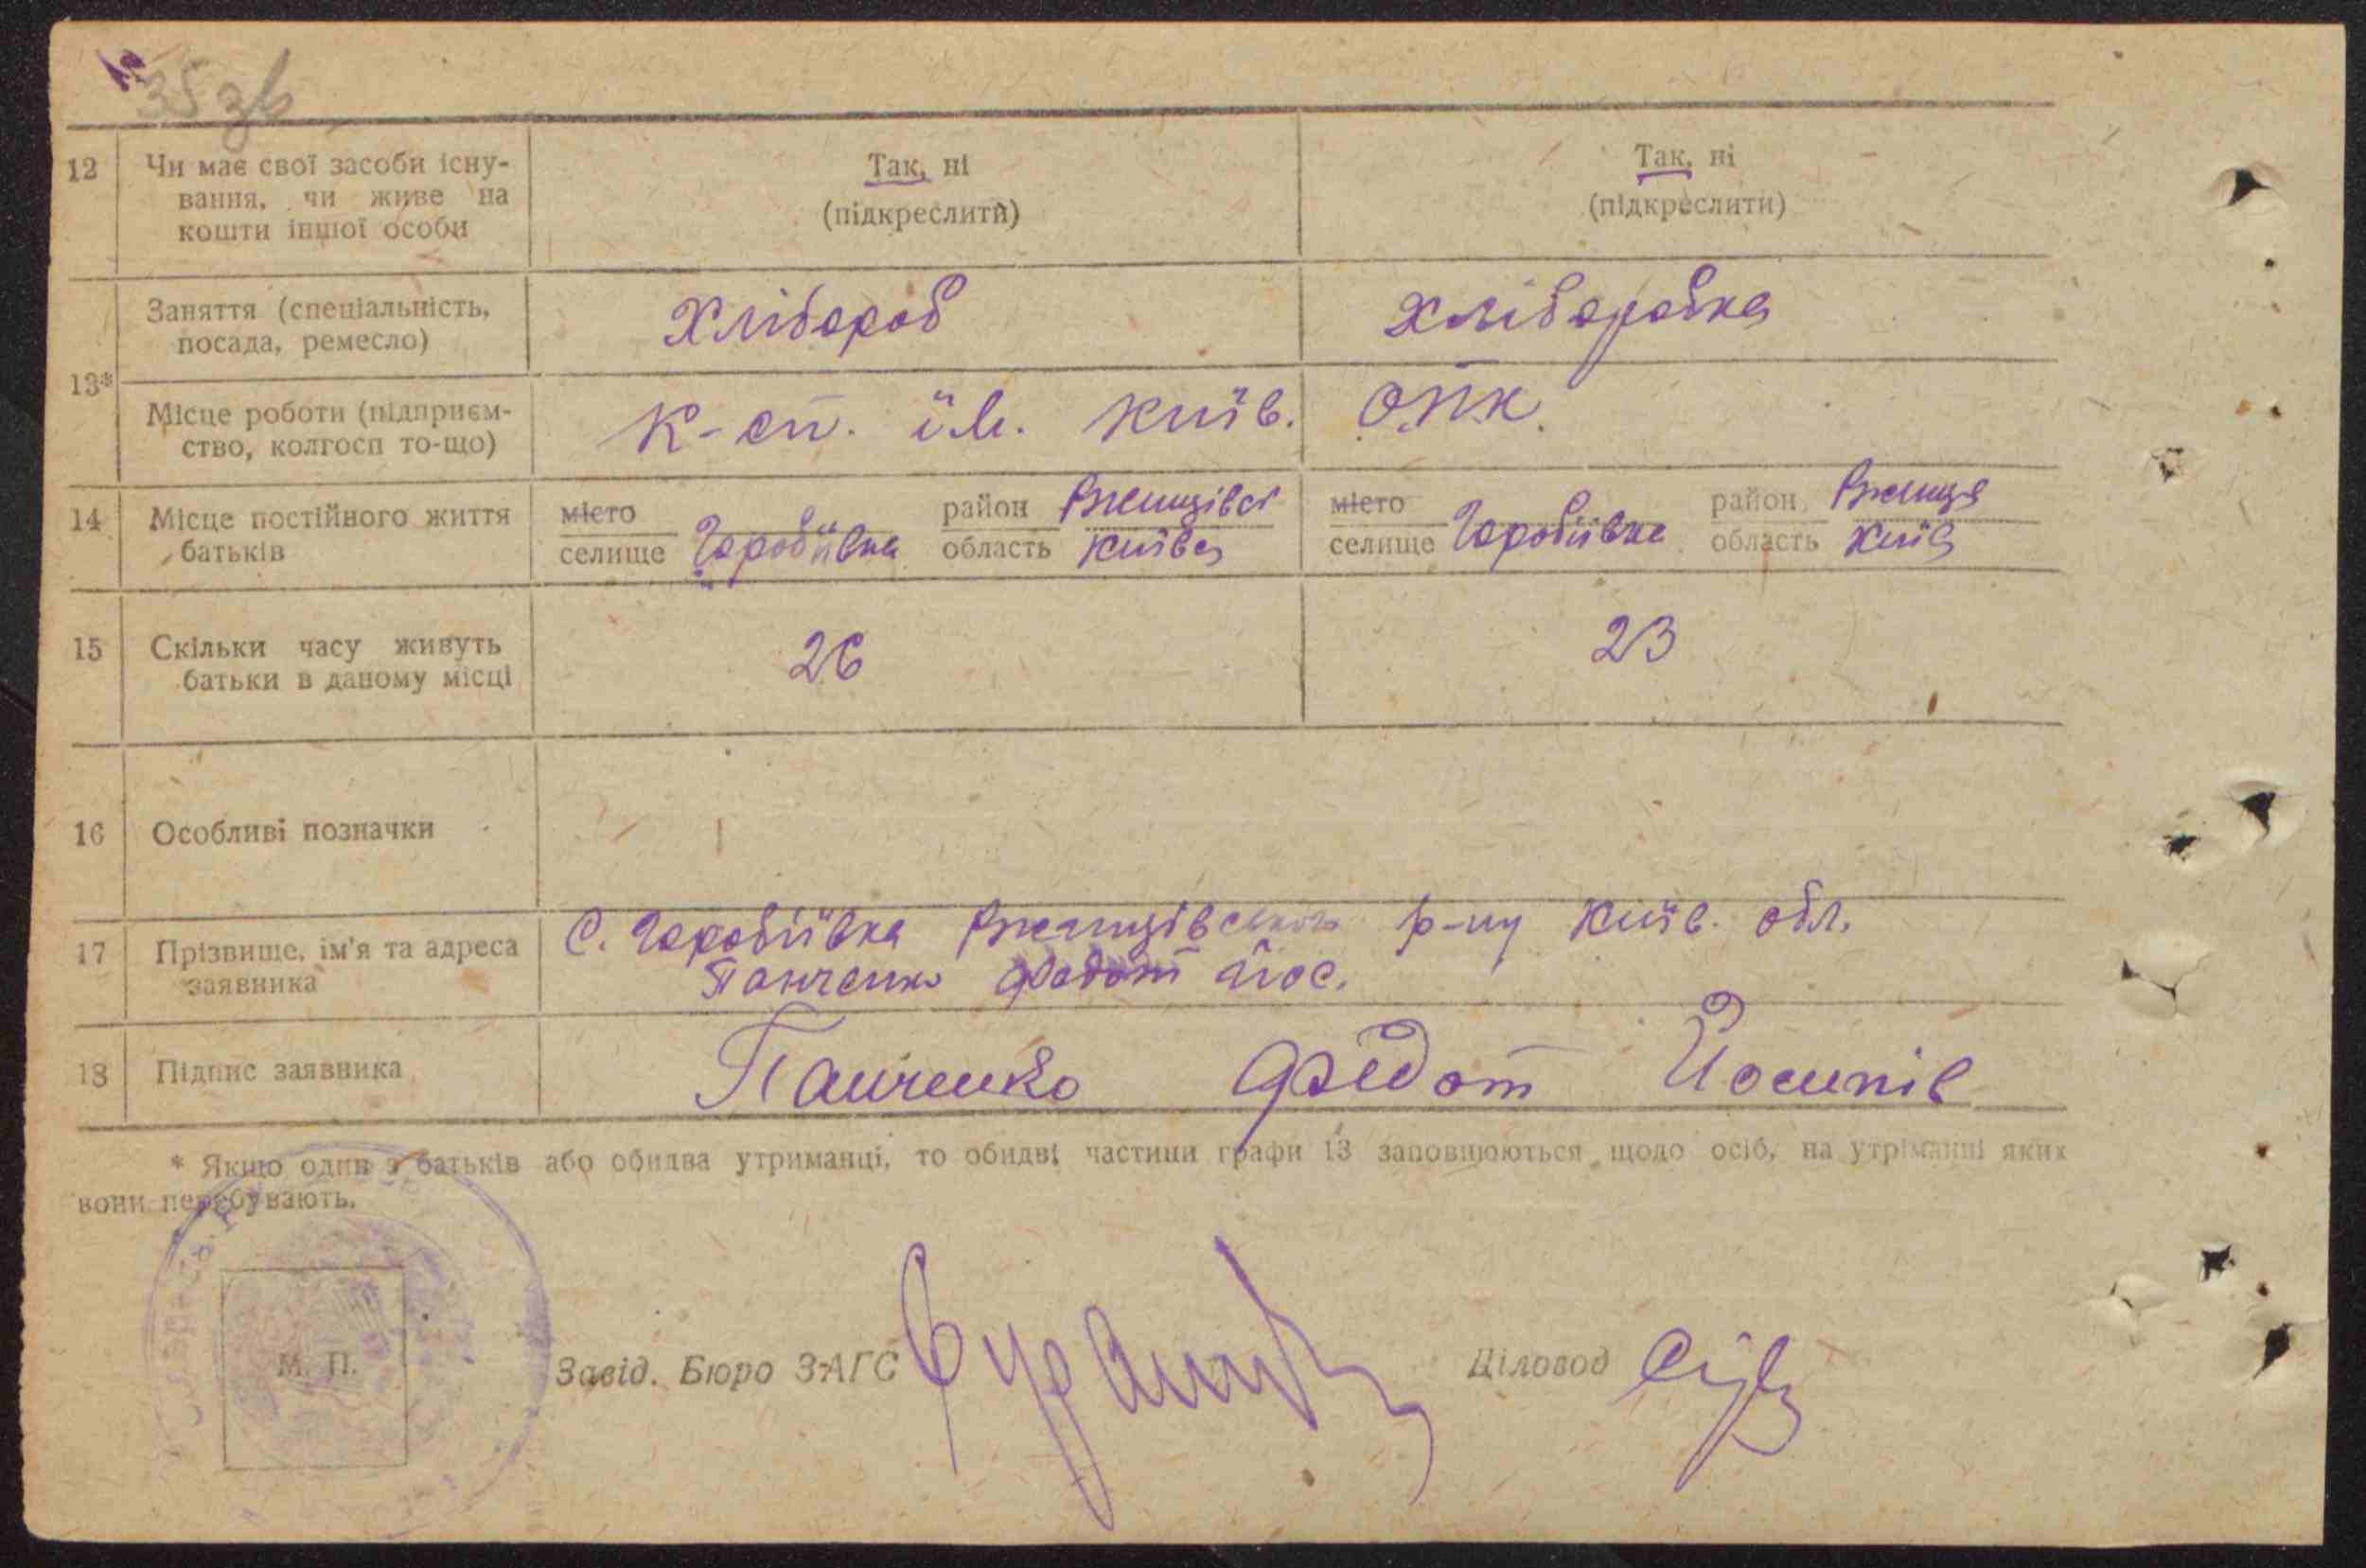 35 зв
12 Чи має свої засоби існу-
вання, чи живе на
кошти іншої особи
Так, ні
(підкреслити)
Так, ні
(підкреслити)
13*
Заняття (спеціальність,
посада, ремесло)
Хлібороб
Хліборобка
Місце роботи (підприєм-
ство, колгосп то-що)
К-сп. ім. Київ.
ОПК.
14 Місце постійного життя
батьків
місто
селище Горобіївка
район Ржищівсь
область Київсь
місто
селище Горобіївка
район Ржище
область Київ
15 Скільки часу живуть
батьки в даному місці
26
23
16 Особливі позначки
17 Прізвище, ім'я та адреса
заявника
С. Горобіївка Ржищівського р-ну Київ. обл.
Панченко Федот Йос.
18 Підпис заявника
Панченко Федот Йосипів
* Якщо один з батьків або обидва утриманці, то обидві частини графи 13 заповнюються щодо осіб, на утріманні яких
вони перебувають.
М. П.
Завід. Бюро ЗАГС
Діловод